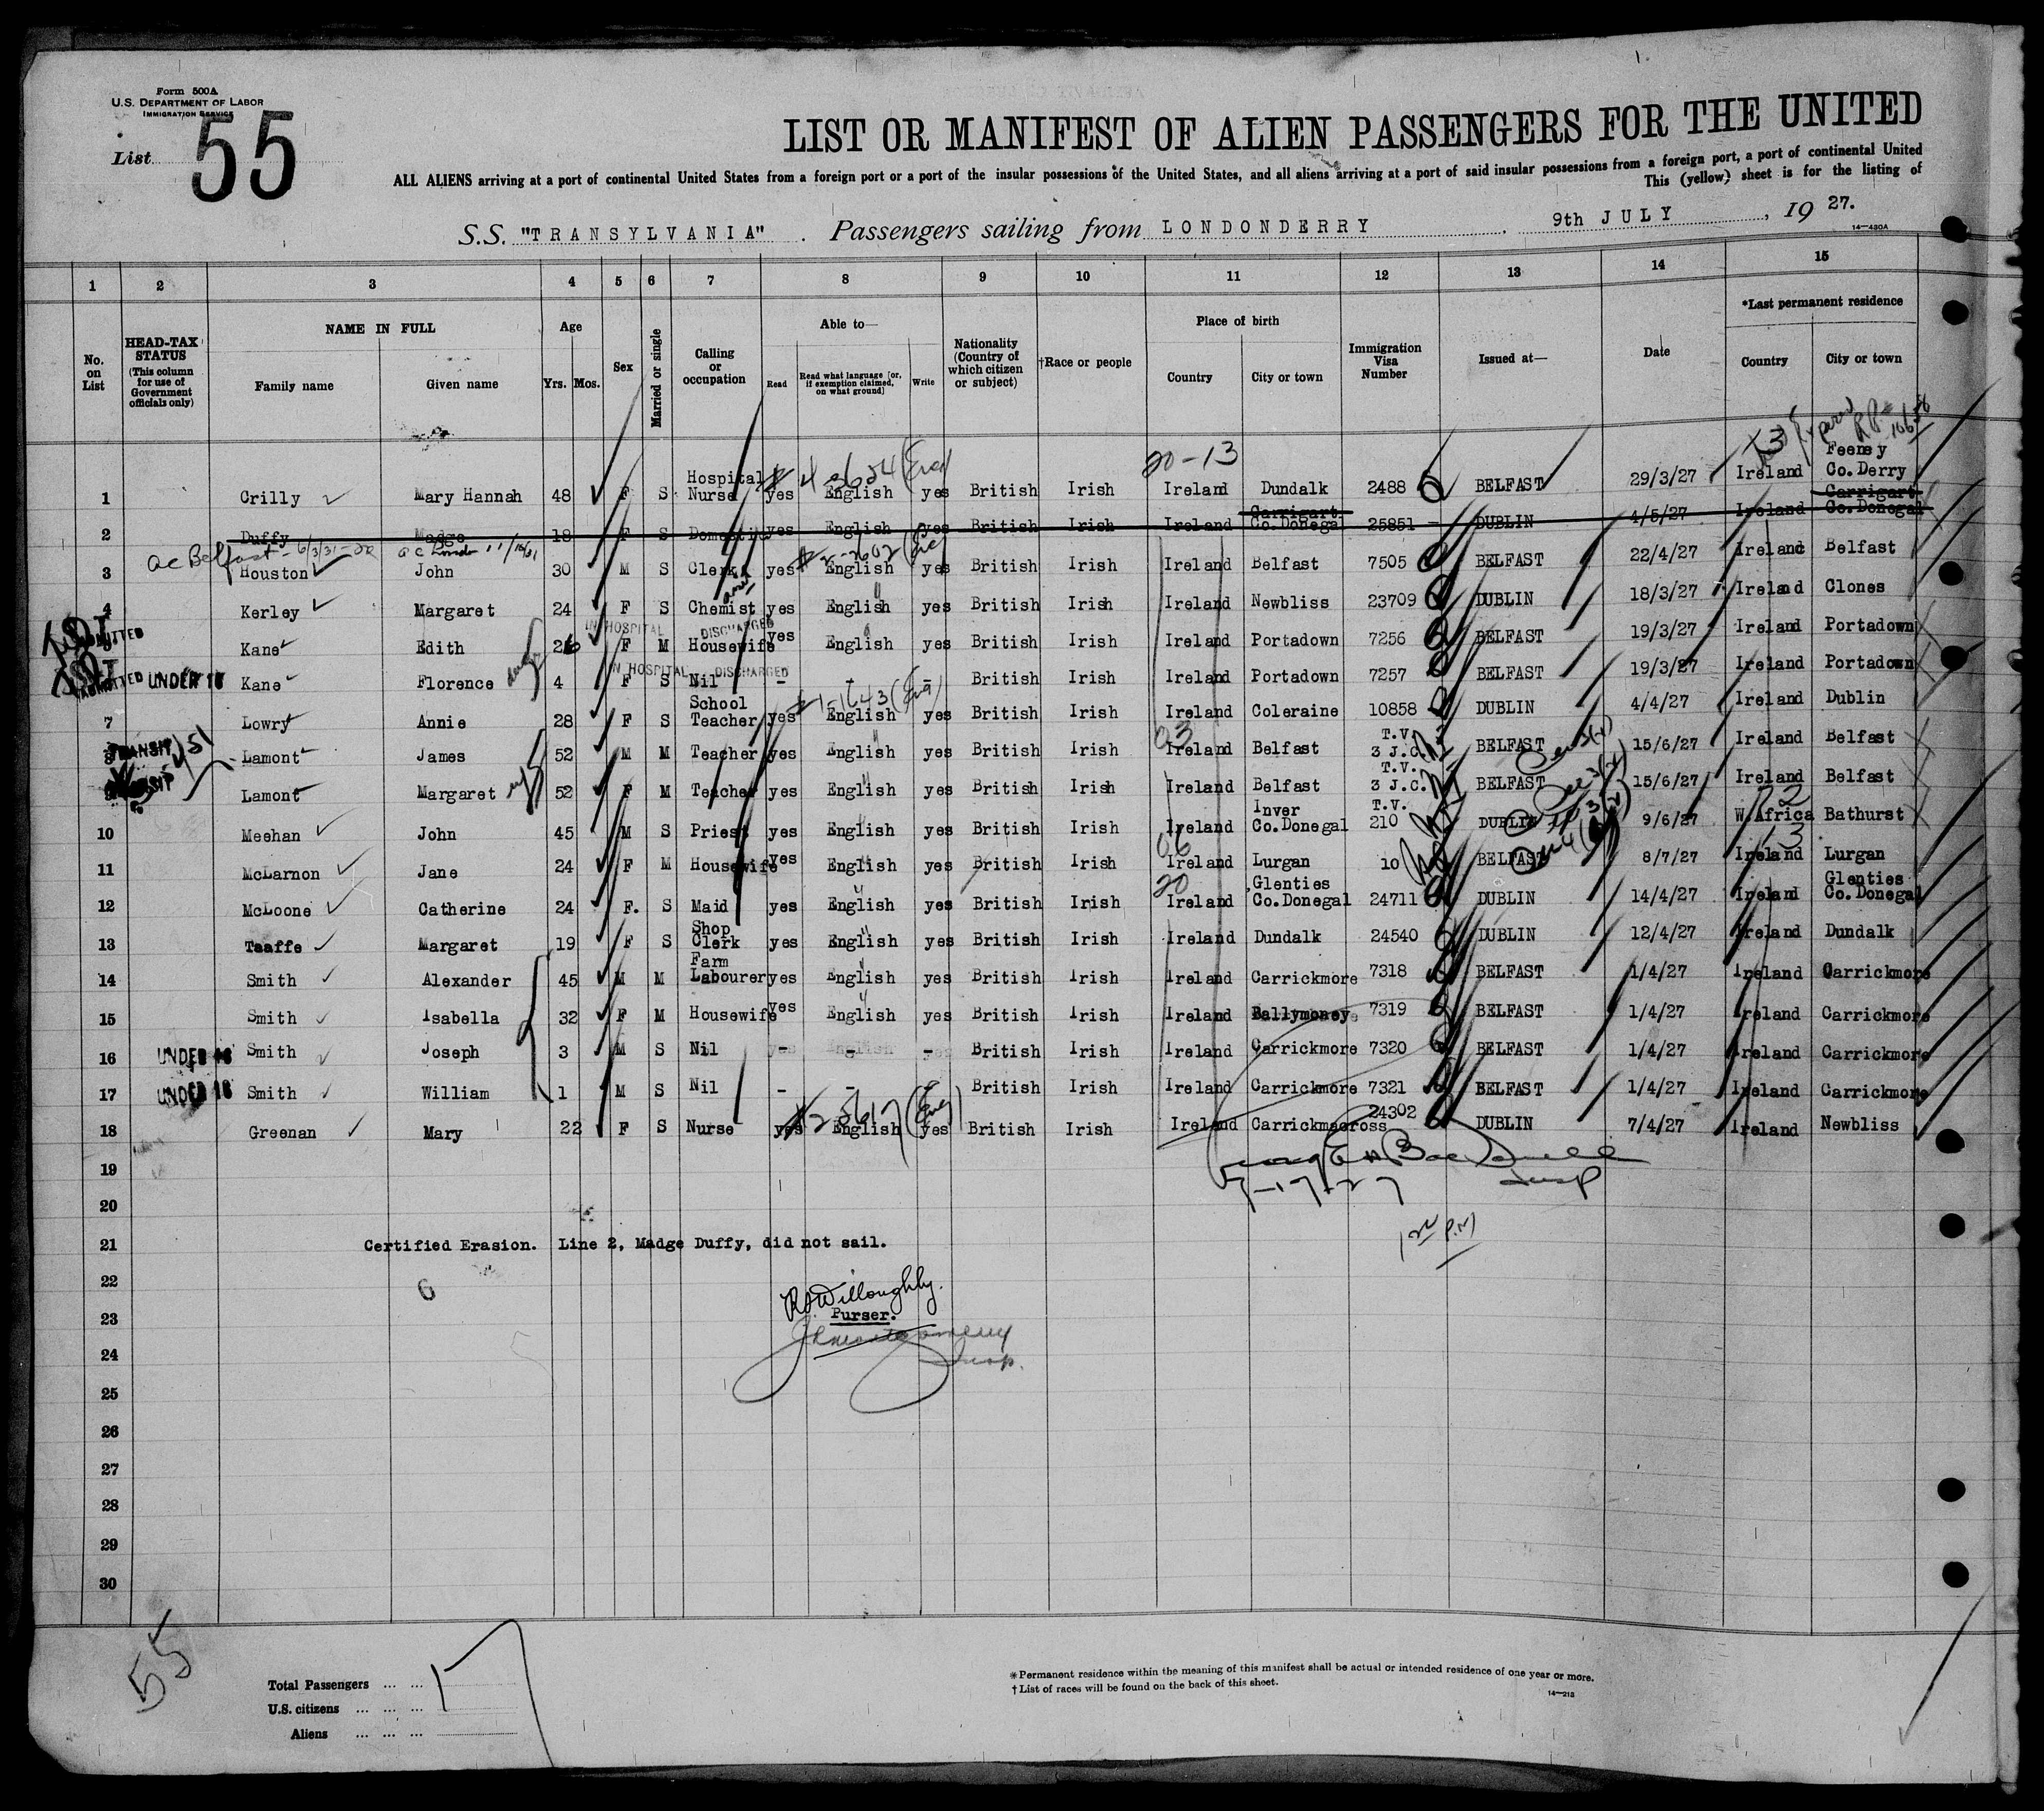 Form 500A
U.S. DEPARTMENT OF LABOR
IMMIGRATION SERVICE
List 55
LIST OR MANIFEST OF ALIEN PASSENGERS FOR THE UNITED
ALL ALIENS arriving at a port of continental United States from a foreign port or a port of the insular possessions of the United States, and all aliens arriving at a port of said insular possessions from a foreign port, a port of continental United
This (yellow) sheet is for the listing of
S.S. "TRANSYLVANIA". Passengers sailing from LONDONDERRY. 9th JULY, 19 27.
14—480A
1 2 3 4 5 6 7 8 9 10 11 12 13 14 15
No. on List
HEAD-TAX STATUS (This column for use of Government officials only)
NAME IN FULL
Family name Given name
Age
Yrs. Mos.
Sex
Married or single
Calling or occupation
Able to—
Read Read what language [or, if exemption claimed, on what ground] Write
Nationality (Country of which citizen or subject)
†Race or people
Place of birth
Country City or town
Immigration Visa Number
Issued at—
Date
*Last permanent residence
Country City or town
20-13
1 Crilly Mary Hannah 48 F S Hospital Nurse yes English yes British Irish Ireland Dundalk 2488 BELFAST 29/3/27 Ireland Feeney Co. Derry
2 Duffy Madge 18 F S Domestic yes English yes British Irish Ireland Carrigart Co. Donegal 25851 DUBLIN 4/5/27 Ireland Carrigart Co. Donegal
ac Belfast - 6/3/31
3 Houston John 30 M S Clerk yes English yes British Irish Ireland Belfast 7505 BELFAST 22/4/27 Ireland Belfast
4 Kerley Margaret 24 F S Chemist yes English yes British Irish Ireland Newbliss 23709 DUBLIN 18/3/27 Ireland Clones
ADMITTED IN HOSPITAL DISCHARGED
5 Kane Edith 26 F M Housewife yes English yes British Irish Ireland Portadown 7256 BELFAST 19/3/27 Ireland Portadown
ADMITTED UNDER 16 IN HOSPITAL DISCHARGED
Kane Florence 4 F S Nil - - - British Irish Ireland Portadown 7257 BELFAST 19/3/27 Ireland Portadown
7 Lowry Annie 28 F S School Teacher yes English yes British Irish Ireland Coleraine 10858 DUBLIN 4/4/27 Ireland Dublin
8 TRANSIT Lamont James 52 M M Teacher yes English yes British Irish Ireland Belfast T.V. 3 J.C. BELFAST 15/6/27 Ireland Belfast
9 TRANSIT Lamont Margaret 52 F M Teacher yes English yes British Irish Ireland Belfast T.V. 3 J.C. BELFAST 15/6/27 Ireland Belfast
10 Meehan John 45 M S Priest yes English yes British Irish Ireland Inver Co. Donegal T.V. 210 DUBLIN 9/6/27 W. Africa Bathurst
11 McLarnon Jane 24 F M Housewife yes English yes British Irish Ireland Lurgan 10 BELFAST 8/7/27 Ireland Lurgan
12 McLoone Catherine 24 F. S Maid yes English yes British Irish Ireland Glenties Co. Donegal 24711 DUBLIN 14/4/27 Ireland Glenties Co. Donegal
13 Taaffe Margaret 19 F S Shop Clerk yes English yes British Irish Ireland Dundalk 24540 DUBLIN 12/4/27 Ireland Dundalk
14 Smith Alexander 45 M M Farm Labourer yes English yes British Irish Ireland Carrickmore 7318 BELFAST 1/4/27 Ireland Carrickmore
15 Smith Isabella 32 F M Housewife yes English yes British Irish Ireland Ballymoney 7319 BELFAST 1/4/27 Ireland Carrickmore
16 UNDER 16 Smith Joseph 3 M S Nil - - - British Irish Ireland Carrickmore 7320 BELFAST 1/4/27 Ireland Carrickmore
17 UNDER 16 Smith William 1 M S Nil - - - British Irish Ireland Carrickmore 7321 BELFAST 1/4/27 Ireland Carrickmore
18 Greenan Mary 22 F S Nurse yes English yes British Irish Ireland Carrickmacross 24302 DUBLIN 7/4/27 Ireland Newbliss
19
7-17-27 Insp
20
21 Certified Erasion. Line 2, Madge Duffy, did not sail.
22
6
R Willoughby.
23 Purser.
24 Montgomery
Insp.
25
26
27
28
29
30
55
Total Passengers ... ... 17
U.S. citizens ... ... ...
Aliens ... ... ...
*Permanent residence within the meaning of this manifest shall be actual or intended residence of one year or more.
†List of races will be found on the back of this sheet.
14—213